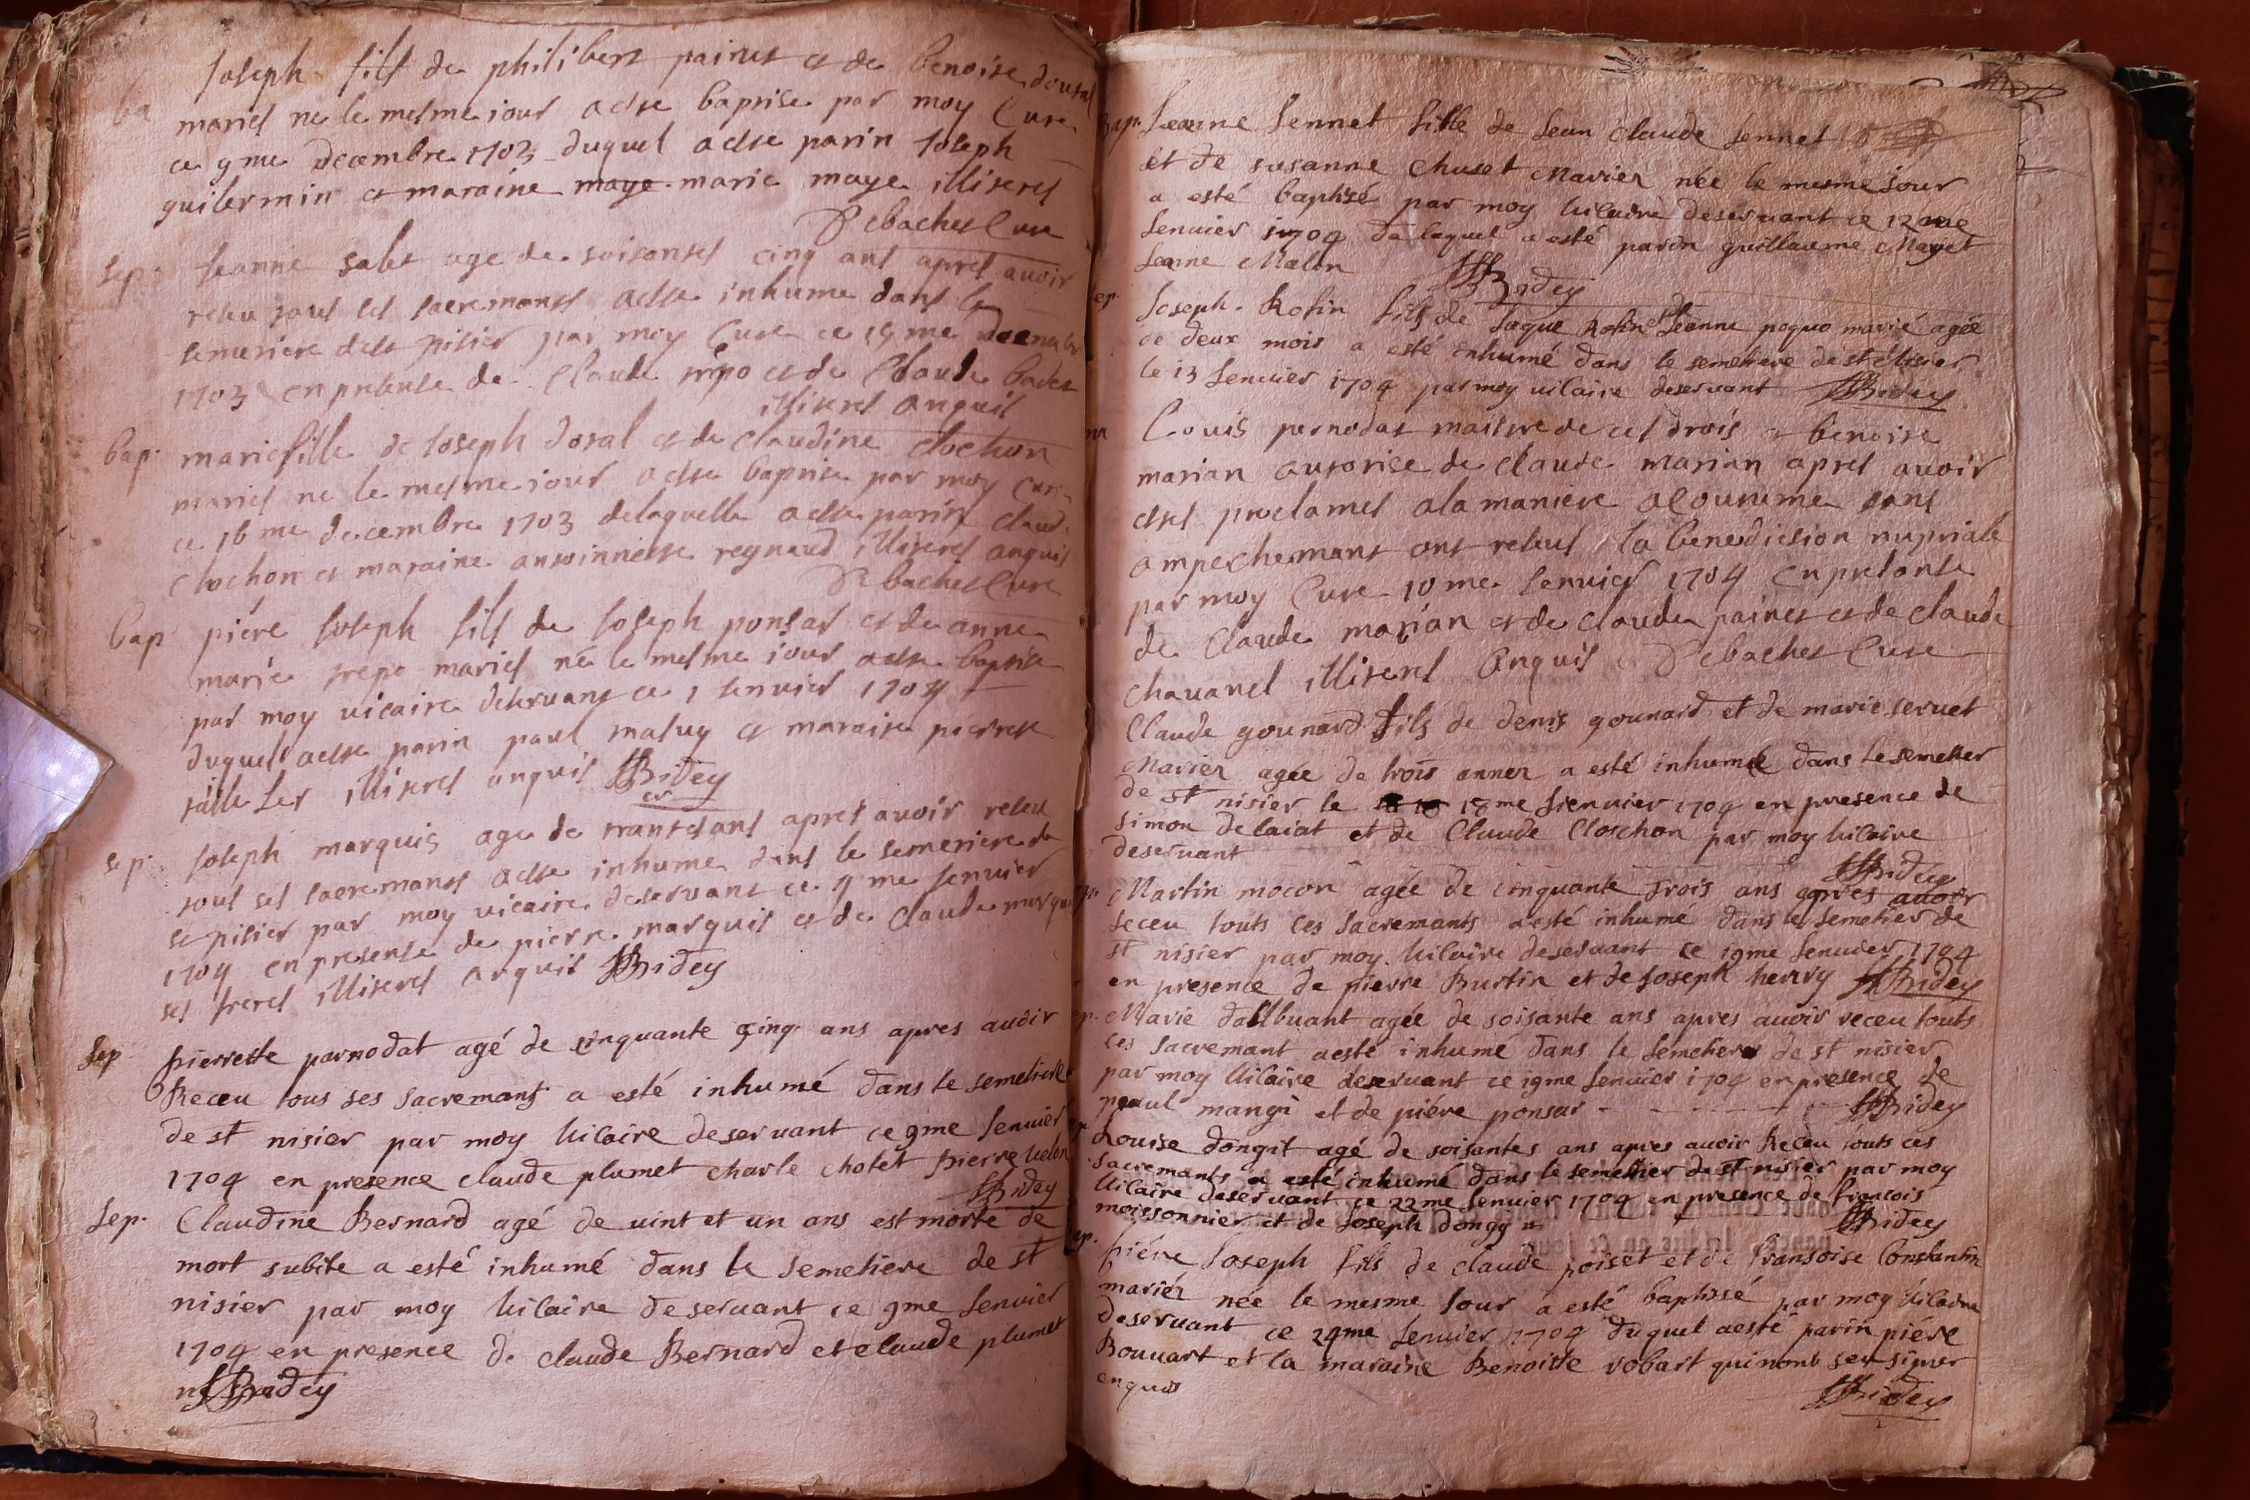 ba
Joseph fils de philibert painet et de benoite doural
mariés né le mesme jour aesté baptise par moy Cure
ce 9me decembre 1703 duquel aesté parin Joseph
guilermin et maraine maye marie maye illiteres
Debachet Cure
sep. Jeanne sales age de soisantes cinq ans apres avoir
reseu tous ses sacremants aeste inhume dans le
semetiere de st nisier par moy Cure ce me
1703 en presense de Claude et de Claude badet
illiteres anquis
bap. marie fille de Joseph doral et de claudine clochon
mariés né le mesme jour aeste baptise par moy cure
ce 16 me decembre 1703 delaquelle aeste parin claude
clochon et maraine antoinnette reynaud illiteres anquis
Debachet Cure
bap piére Joseph fils de Joseph ponsar et de anne
marie trepe mariés né le mesme jour aeste baptise
par moy vicaire deservant ce 1 Jenvier 1704
duquel aeste parin paul matuy et maraine pierrette
illiteres anquis Bidey
sep. Joseph marquis age de trantes ans apres avoir reseu
tous ses sacremants aeste inhume dans le semetiere de
st nisier par moy vicaire deservant ce 4 me Jenvier
1704 en presense de pierre marquis et de claude marquis
ses freres illiteres anquis Bidey
Sep pierrette parnodat agé de cinquante cinq ans apres avoir
Receu tous ses sacremants a esté inhumé dans le semetiere
de st nisier par moy vicaire deservant ce 9me Jenvier
1704 en presence claude plumet charle chotet pierre
Bidey
Sep. Claudine Bernard agé de vint et un ans est morte de
mort subite a esté inhumé dans le semetiere de st
nisier par moy vicaire deservant ce 9me Jenvier
1704 en presence de claude Bernard et claude plumet
Bidey
Bap. Jeanne Jennet fille de Jean claude Jennet
et de susanne chuset mariez née le mesme jour
a esté baptisé par moy vicaire deservant ce 12me
Jenvier 1704 de laquel a esté parin guillaume Mayet
Jeanne Malin Bidey
sep. Joseph Rosin fils de Jaque Rosin et Jeanne poquo marié agée
de deux mois a esté inhumé dans le semetiere de st nisier
le 13 Jenvier 1704 par moy vicaire deservant Bidey
ma Louis pernodat maistre de ces drois et benoite
marian autorise de claude marian apres avoir
estes proclames a la maniere acoutume sans
ampechemant ont reseus la benediction nuptiale
par moy Cure 10 me Jenvier 1704 en presense
de Claude marian et de claude painet et de claude
chavanel illiteres anquis Debachet Cure
Claude gounard fils de denis gounard et de marie servet
mariez agée de trois annez a esté inhumé dans le semetier
de st nisier le 18me Jenvier 1704 en presence de
simon delaiat et de Claude Closchon par moy vicaire
deservant Bidey
Martin mocon agée de cinquante trois ans apres avoir
receu touts ces sacremants aesté inhumé dans le semetier de
st nisier par moy vicaire deservant ce 19me Jenvier 1704
en presence de pierre Burtin et de Joseph henry Bidey
sep. Marie dallbuant agée de soisante ans apres avoir receu touts
ces sacremant aesté inhumé dans le semetiere de st nisier
par moy vicaire deservant ce 19me Jenvier 1704 en presence de
paul mangi et de piére ponsar Bidey
Louise dongit agé de soisantes ans apres avoir Receu touts ces
sacremants a esté inhumé dans le semetier de st nisier par moy
vicaire deservant ce 22me Jenvier 1704 en presence de francois
moissonnier et de Joseph dongy Bidey
piére Joseph fils de claude poiset et de fransoise Constantin
mariéz née le mesme Jour a esté baptisé par moy vicaire
deservant ce 24me Jenvier 1704 duquel aesté parin piére
Bouvart et la maraine Benoiste robart qui nont seu signer
enquis
Bidey